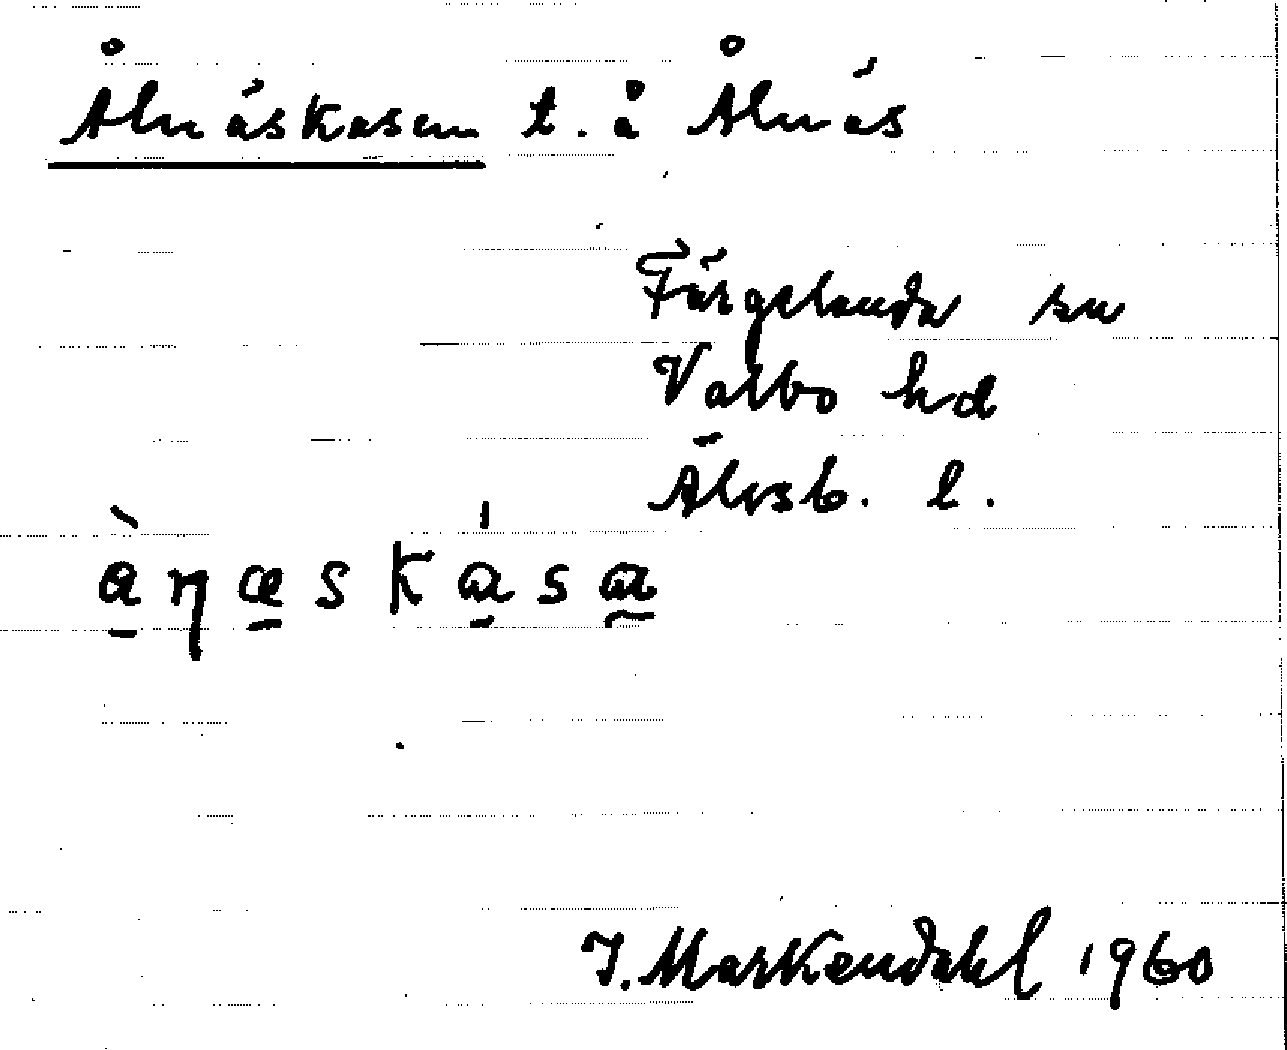 Ålnäskasen t. å Ålnäs
Färgelanda sn
Valbo hd
Älvsb. l.
àŋæskasa
I. Markendahl 1960